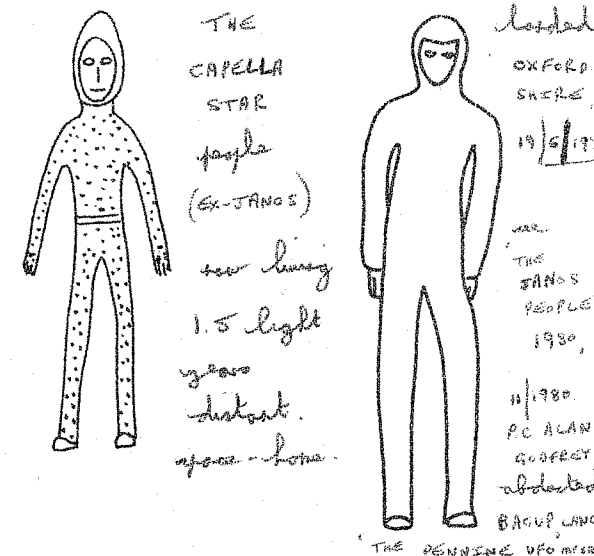 THE
CAPELLA
STAR
people
(EX-JANOS)
now living
1.5 light
years
distant.
space-home.
landed
OXFORD
SHIRE
19/6/19
THE
JANOS
PEOPLE
1980,
11/1980
P.C ALAN
GODFREY
abducted
BACUP LANC
'THE PENNINE UFO